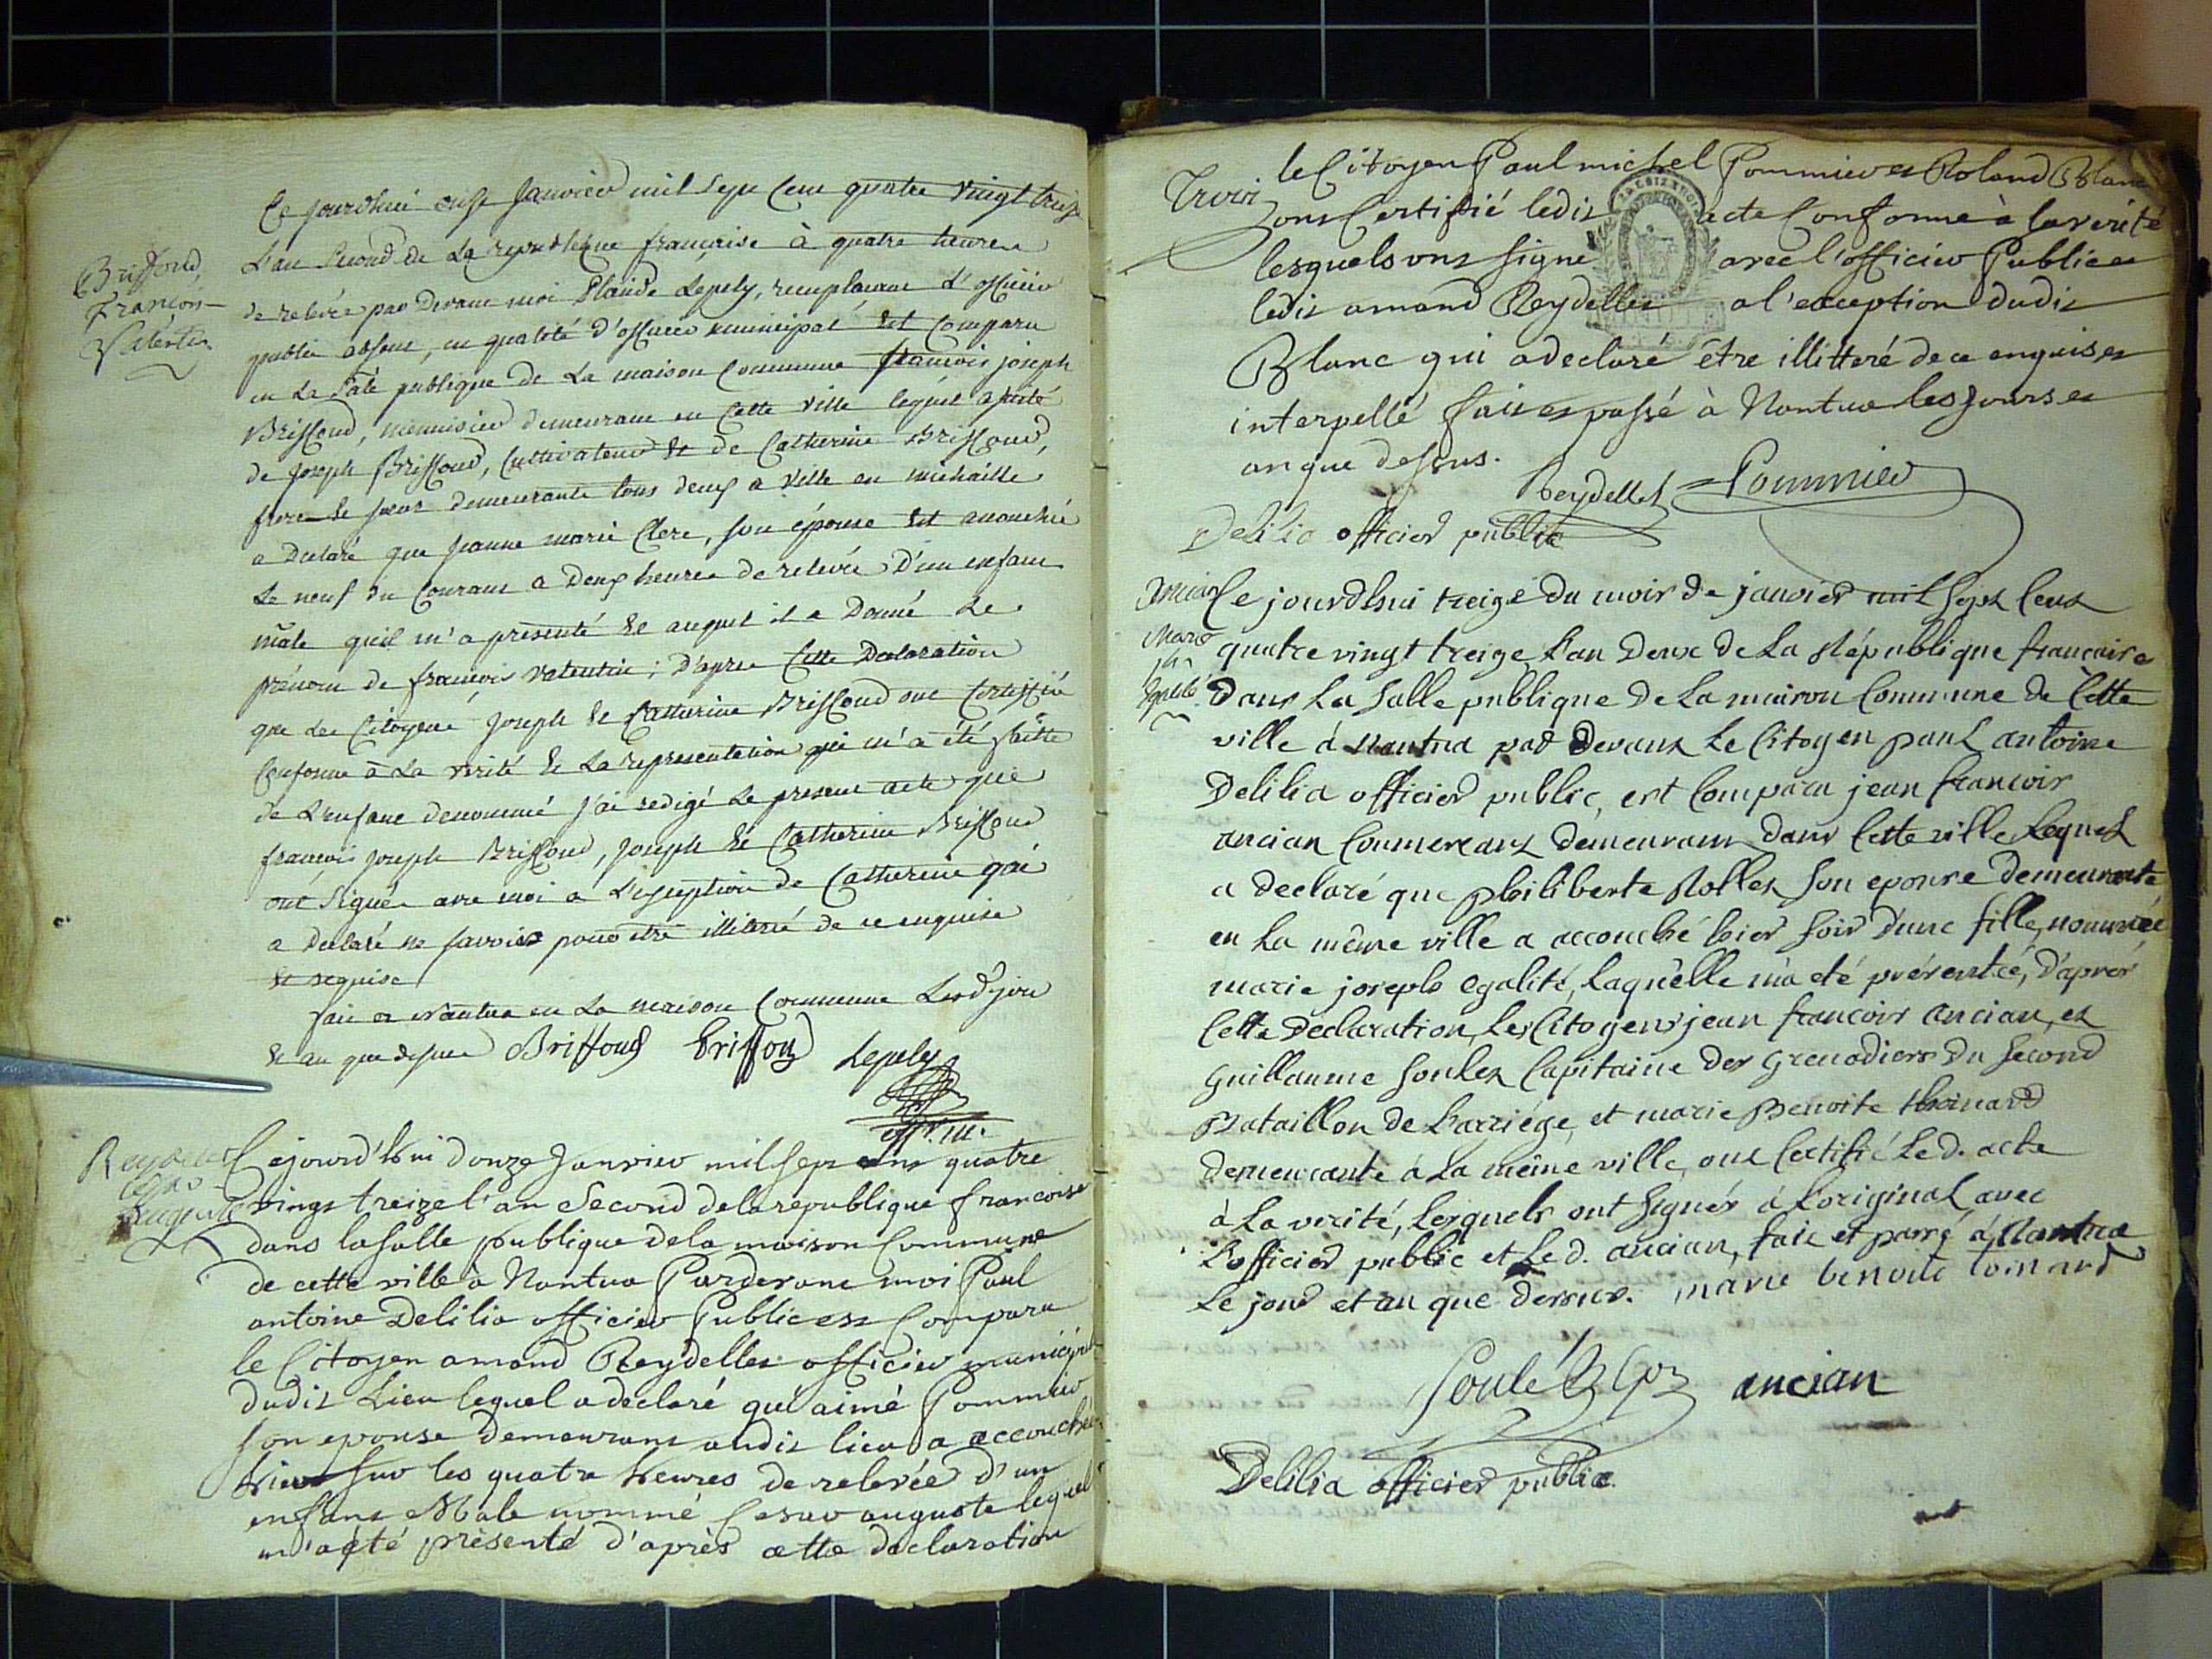 Ce jourdhui onze Janvier mil sept cent quatre vingt treize
Briffoud, françois Valentin
L'an Second de La republique française à quatre heures
de relevée par Devant moi Plaide Lepely, remplacant l'officier
public absent, en qualité d'officier municipal est comparu
en La Sale publique de La maison Commune françois joseph
Briffoud, menuisier demeurant en Cette Ville lequel assisté
de Joseph Briffoud, Cultivateur & de Catherine Briffoud,
frere & soeur demeurants tous deux a Ville en michaille
a Declaré que jeanne marie Clerc, son épouse est accouchée
Le neuf du Courant a Deux heures de relevée D'un enfant
mâle qu'il m'a présenté & auquel il a Donné Le
prénom de françois Valentin; D'apres Cette Declaration
que Les Citoyens Joseph & Catherine Briffoud ont Certiffié
Conforme à La verité & La représentation qui m'a été faitte
de L'enfant denommé j'ai redigé Le present acte que
françois joseph Briffoud, Joseph & Catherine Briffoud
ont Signés avec moi a L'exception de Catherine qui
a Declaré ne savoir pour etre illitteré de ce enquise
& requise
fait a Nantua en La maison Commune Lesd. jour
& an que dessus Briffoud briffoud Lepely
off. m.
Reydellet Cesar auguste
Cejourd'hui douze Janvier mil sept cens quatre
vingt treize l'an Second de la republique francoise
dans la salle publique de la maison Commune
de cette ville à Nantua Pardevant moi Paul
antoine Delilia officier Public est Comparu
le Citoyen amand Reydellet officier municipal
dudit Lieu lequel a declaré qu'aimé Pommier
son epouse demeurant audit lieu a accouchée
hier sur les quatre heures de relevée d'un
enfant Male nommé Cesar auguste lequel
m'a été présenté d'après cette declaration
Trois
le Citoyen Paul michel Pommier et Roland Blanc
ont Certifié ledit acte Conforme à la verité
lesquels ont signé avec l'officier Public et
ledit amand Reydellet a l'exception dudit
Blanc qui a declaré être illitteré de ce enquis et
interpellé fait et passé à Nantua les jours et
an que dessus.
Reydellet Pommier
Delilia officier public
Ancian Marie jph Egalité
Ce jourdhui treize du mois de janvier mil sept Cent
quatre vingt treize L'an Deux de La République francaise
Dans La Salle publique De La maison Commune de Cette
ville à Nantua par Devant Le Citoyen paul antoine
Delilia officier public, est Comparu jean francois
ancian Commercant demeurant dans Cette ville Lequel
a declaré que philiberte Rollet son epouse demeurante
en La même ville a accouché hier soir d'une fille, nommée
marie joseph egalité, Laquelle m'a été présentée, D'après
Cette Declaration, Les Citoyens jean francois ancian, et
Guillaume Soulez Capitaine des Grenadiers du Second
Bataillon de L'arriége, et marie Benoite thoinard
demeurante à La même ville, ont Certifié Le d. acte
à La verité, Lesquels ont Signés à L'original avec
L'officier public et Le d. ancian, fait et passé à Nantua
Le jour et an que dessus. marie benoite toinard
Soulé Cpe ancian
Delilia officier public